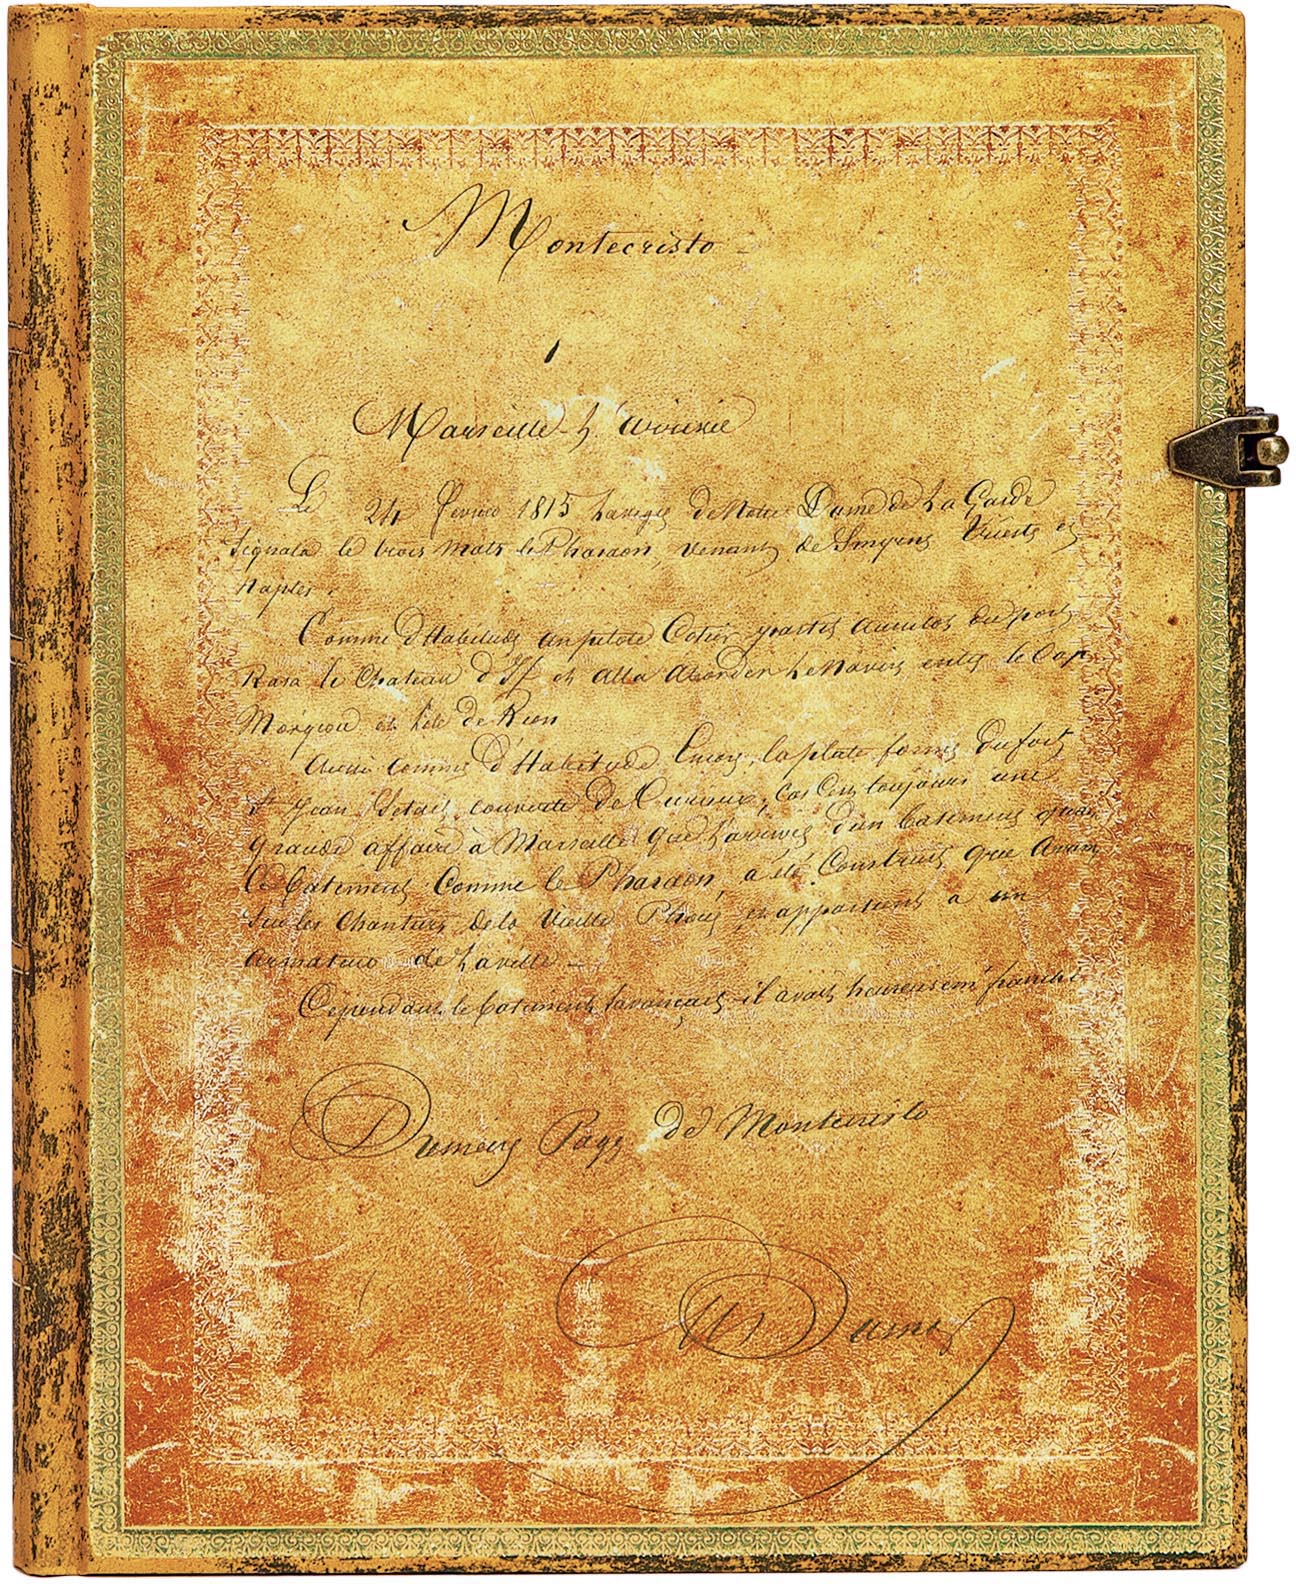 Montecristo
1
Marseille L'arrivée
Le 24 fevrier 1815 la vigie de Notre Dame de La Garde
signala le trois mats le Pharaon, venant de Smyrne Trieste et
Naples.
Comme d'Habitude un pilote Cotier partit aussitot du port
Rasa le Chateau d'If et alla aborder le Navire entre le Cap
Morgiou et l'ile de Rion
Aussi comme d'Habitude encore, la plate forme du fort
St Jean s'etait couverte de Curieux, Car C'est toujours une
Grande affaire à Marseille que l'arrivée d'un batiment quan
le batiment Comme le Pharaon, a été Construit gréé Arrimé
sur les Chantiers de la Vieille Phocée et appartient a un
armateur de la ville –
Cependant le batiment s'avançait il avait heureusemt franchi
Premiere Page de Montecristo
Alx Dumas